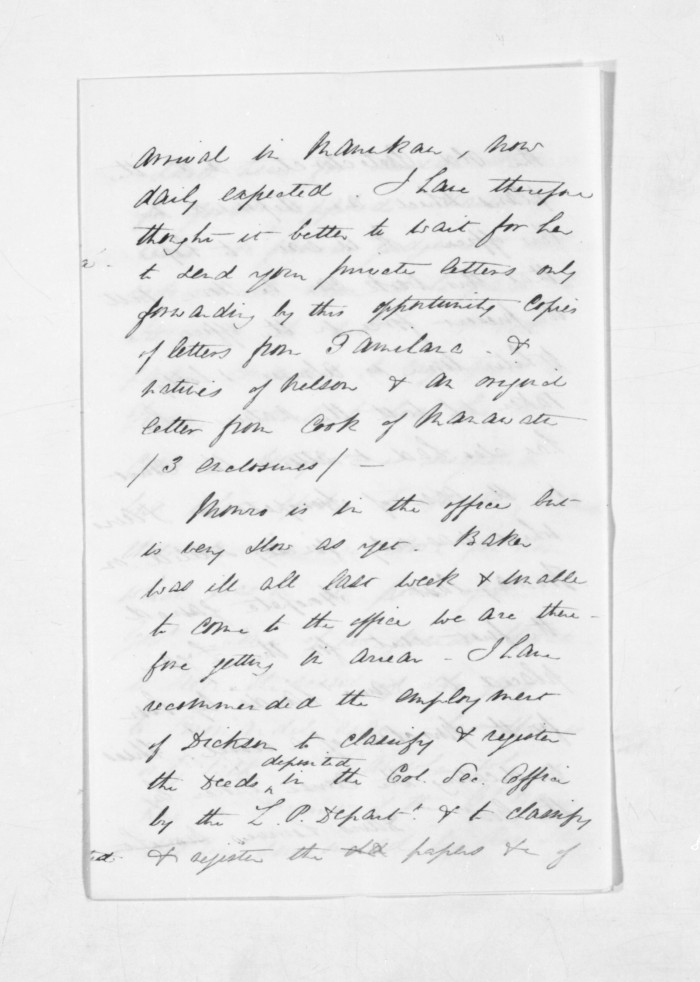 arrival in Manukau, now
daily expected. I have therefore
thought it better to wait for her
to send your private letters only
forwarding by this opportunity copies
of letters from Tamihana &
natives of Nelson & an original
letter from Cook of Manawatu
/3 enclosures/ —
Monro is in the office but
is very slow as yet. Baker
was ill all last week & unable
to come to the office we are there-
fore getting in arrear - I have
recommended the employment
of Dickson to classify & register
the Deeds deposited in the Col. Sec. Office
by the L. P. Depart.t & to classify
& register the papers &c of